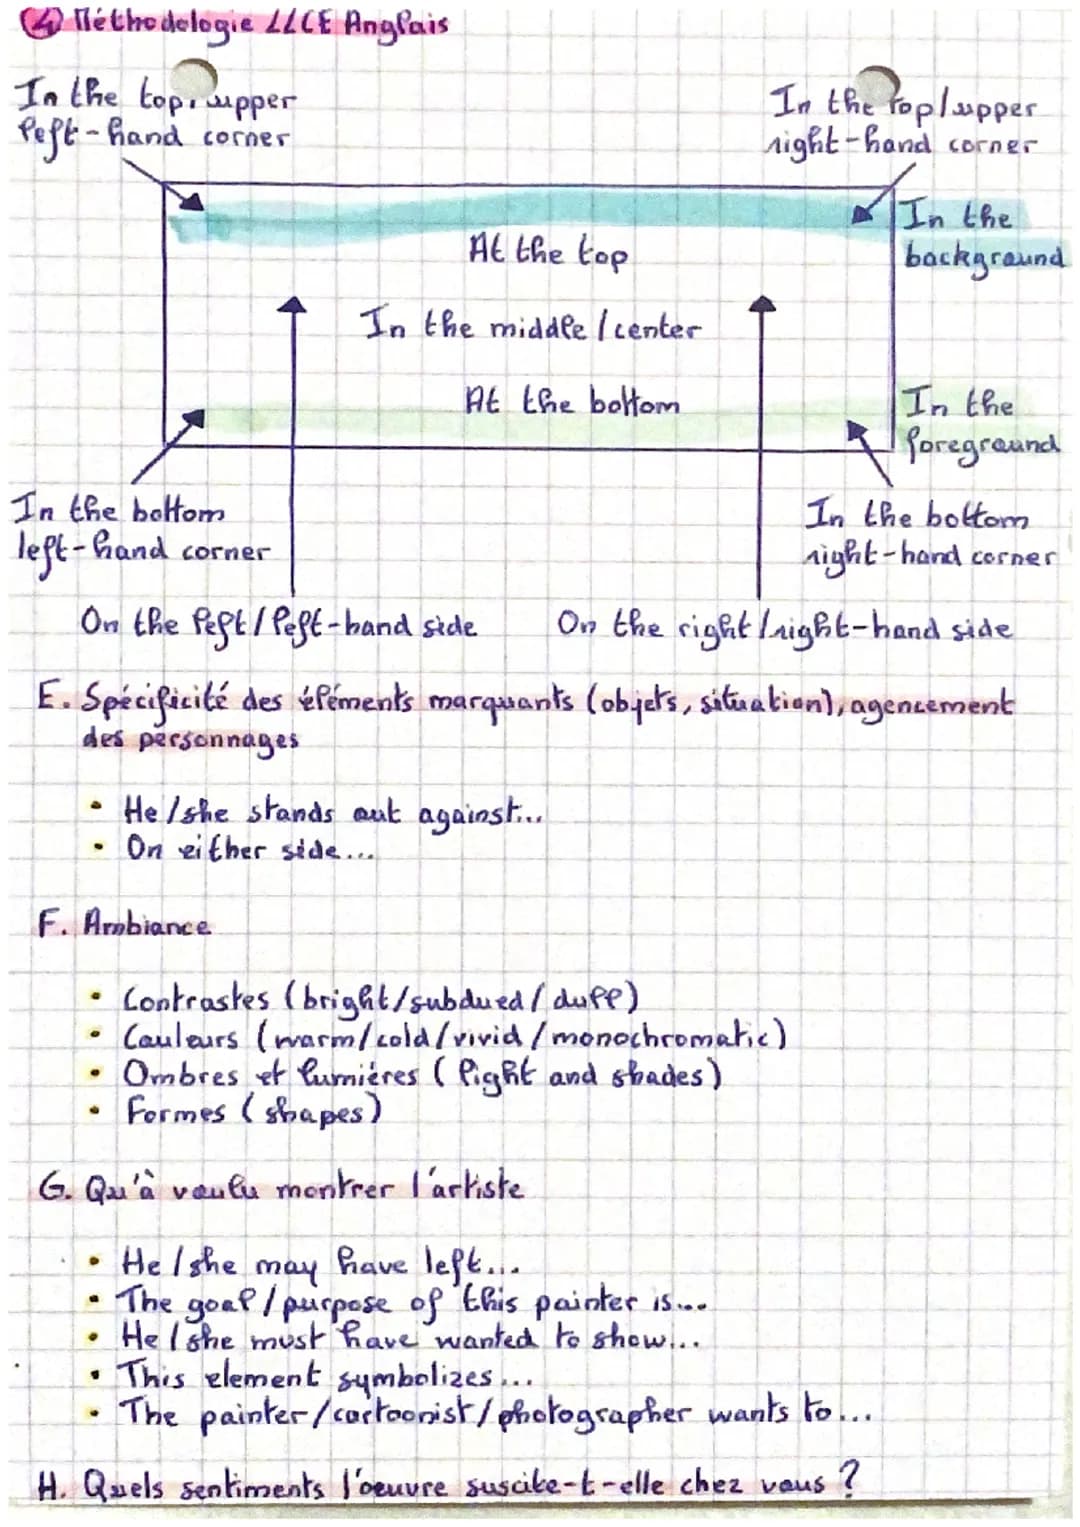 ④ Méthodologie LLCE Anglais
In the top/upper
left-hand corner
In the top/upper
right-hand corner
In the
background
At the top
In the middle/center
At the bottom
In the
foreground
In the bottom
left-hand corner
In the bottom
right-hand corner
On the left/left-hand side
On the right/right-hand side
E. Spécificité des éléments marquants (objets, situation), agencement
des personnages
• He/she stands out against...
• On either side...
F. Ambiance
• Contrastes (bright/subdued/dull)
• Couleurs (warm/cold/vivid/monochromatic)
• Ombres et lumières (light and shades)
• Formes (shapes)
G. Qu'à voulu montrer l'artiste
• He/she may have left...
• The goal/purpose of this painter is...
• He/she must have wanted to show...
• This element symbolizes...
• The painter/cartoonist/photographer wants to...
H. Quels sentiments l'oeuvre suscite-t-elle chez vous ?